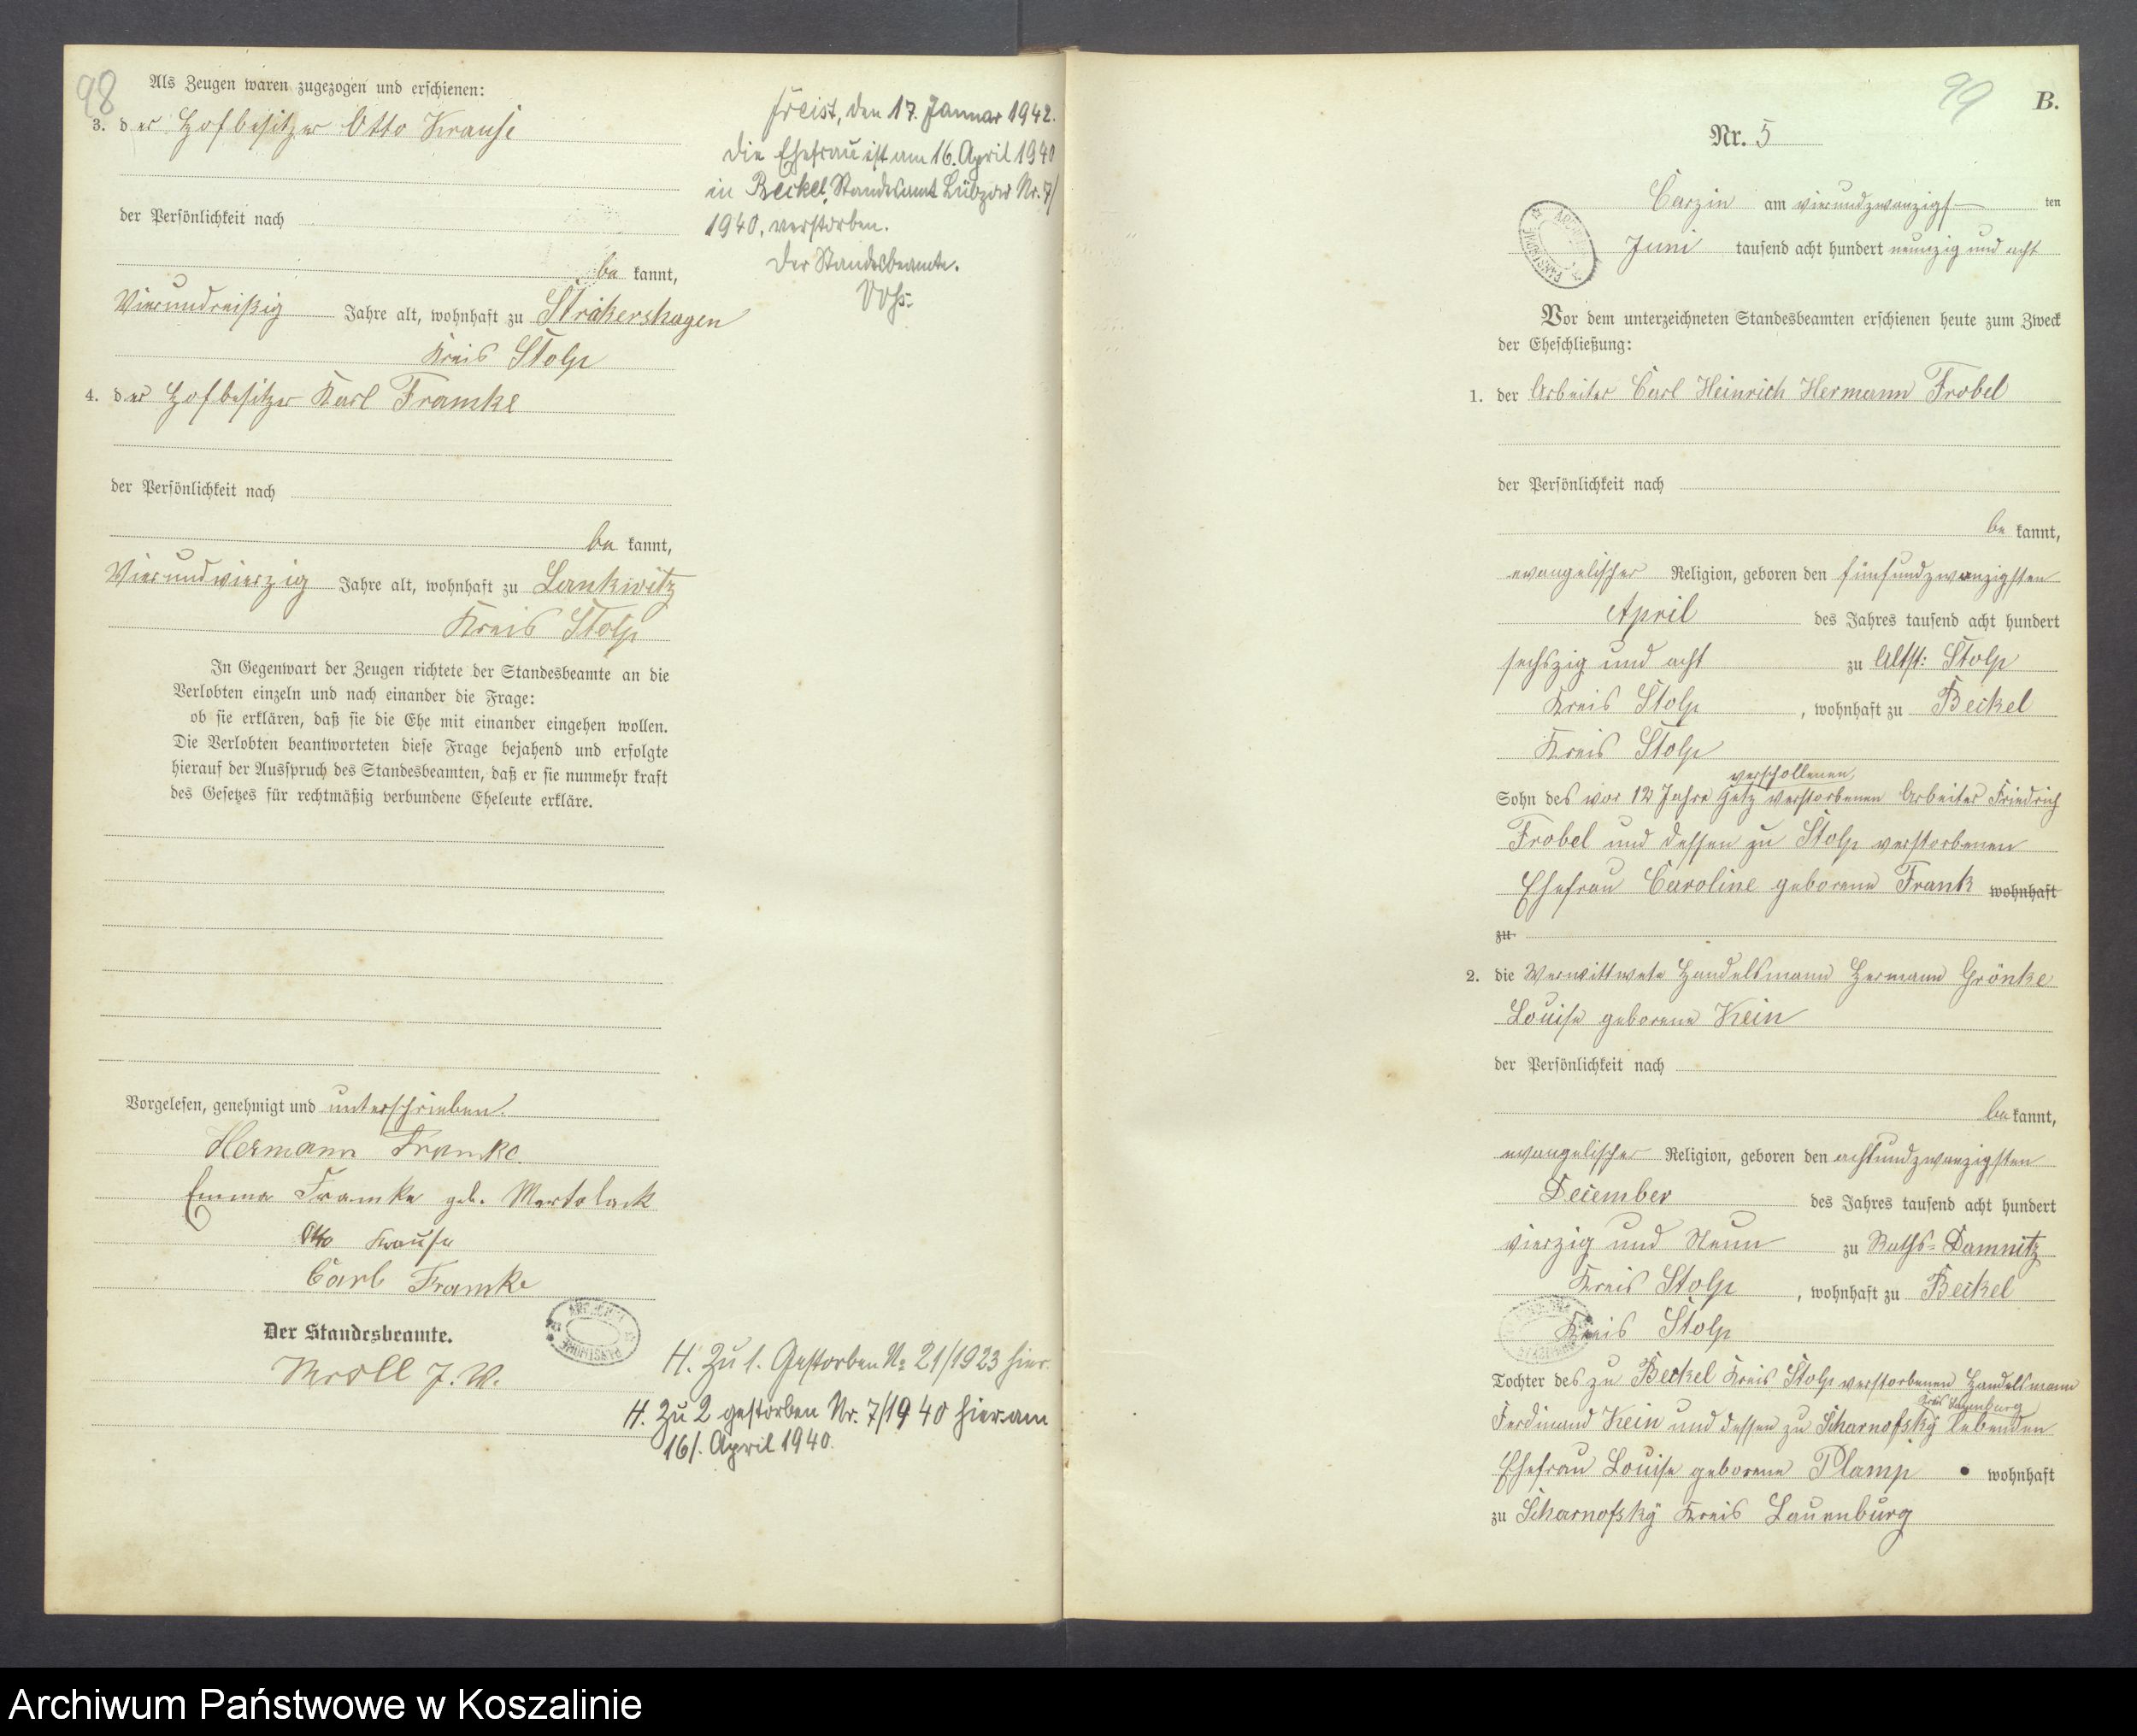 98
Als Zeugen waren zugezogen und erschienen:
3. der Hofbesitzer Otto Krause
der Persönlichkeit nach
be kannt,
Vierundreißig Jahre alt, wohnhaft zu Strikershagen
Kreis Stolp
4. der Hofbesitzer Karl Framke
der Persönlichkeit nach
be kannt,
Vierundvierzig Jahre alt, wohnhaft zu Lankwitz
Kreis Stolp
In Gegenwart der Zeugen richtete der Standesbeamte an die
Verlobten einzeln und nach einander die Frage:
ob sie erklären, daß sie die Ehe mit einander eingehen wollen.
Die Verlobten beantworteten diese Frage bejahend und erfolgte
hierauf der Ausspruch des Standesbeamten, daß er sie nunmehr kraft
des Gesetzes für rechtmäßig verbundene Eheleute erkläre.
Vorgelesen, genehmigt und unterschrieben.
Hermann Framke.
Emma Framke geb. Martolack
Otto Krause
Carl Framke
Der Standesbeamte.
Kroll J. V.
Freist, den 17. Januar 1942.
Die Ehefrau ist am 16. April 1940
in Beckel, Standesamt Lübzow Nr. 7/
1940, verstorben.
Der Standesbeamte.
H. Zu 1. Gestorben No 21/1923 hier.
H. Zu 2 gestorben Nr. 7/1940 hier am
16/. April 1940.
99
B.
Nr. 5
Carzin am vierundzwanzigs ten
Juni tausend acht hundert neunzig und acht
Vor dem unterzeichneten Standesbeamten erschienen heute zum Zweck
der Eheschließung:
1. der Arbeiter Carl Heinrich Hermann Frobel
der Persönlichkeit nach
be kannt,
evangelischer Religion, geboren den fünfundzwanzigsten
April des Jahres tausend acht hundert
sechszig und acht zu Altst: Stolp
Kreis Stolp , wohnhaft zu Beckel
Kreis Stolp
verschollenen,
Sohn des vor 12 Jahre jetz verstorbenen Arbeiter Friedrich
Frobel und dessen zu Stolp verstorbenen
Ehefrau Caroline geborene Frank wohnhaft
zu
2. die Verwittwete Handelsmann Hermann Grönke
Louise geborene Kein
der Persönlichkeit nach
be kannt,
evangelischer Religion, geboren den achtundzwanzigsten
December des Jahres tausend acht hundert
vierzig und Neun zu Raths-Damnitz
Kreis Stolp , wohnhaft zu Beckel
Kreis Stolp
Tochter des zu Beckel Kreis Stolp verstorbenen Handelsmann
Kreis Lauenburg
Ferdinand Kein und dessen zu Scharnofsky lebenden
Ehefrau Louise geborene Plamp wohnhaft
zu Scharnofsky Kreis Lauenburg
Archiwum Państwowe w Koszalinie